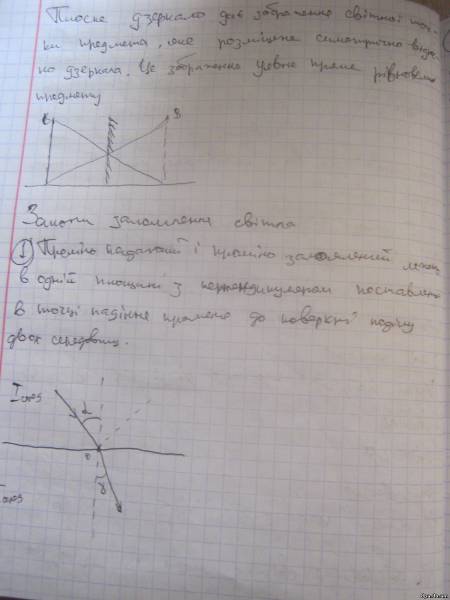 Плоске дзеркало дає зображення світної точ-
ки предмета, яке розміщене симетрично відно
но дзеркала. Це зображення уявне пряме рівновелике
предмету
S
Закони заломлення світла
① Промінь падаючий і промінь заломлений лежать
в одній площині з перпендикуляром поставлено
в точці падіння променя до поверхні поділу
двох середовищ.
I сер α
0
γ
сер